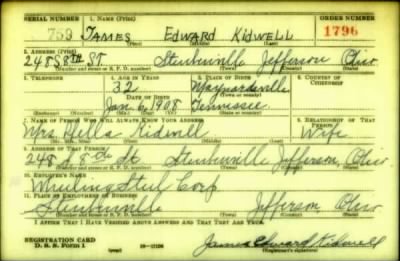 SERIAL NUMBER 1. NAME (Print) ORDER NUMBER
759 JAMES Edward Kidwell 1796
(First) (Middle) (Last)
2. ADDRESS (Print)
248 S 8th ST. Steubenville Jefferson Ohio
(Number and street or R. F. D. number) (Town) (County) (State)
3. TELEPHONE 4. AGE IN YEARS 5. PLACE OF BIRTH 6. COUNTRY OF CITIZENSHIP
32 Maynardville
DATE OF BIRTH (Town or county)
Jan 6, 1908 Tennessee
(Exchange) (Number) (Mo.) (Day) (Yr.) (State or country)
7. NAME OF PERSON WHO WILL ALWAYS KNOW YOUR ADDRESS 8. RELATIONSHIP OF THAT PERSON
Mrs. Della Kidwell Wife
(Mr., Mrs., Miss) (First) (Middle) (Last)
9. ADDRESS OF THAT PERSON
248 S 8th St Steubenville Jefferson, Ohio
(Number and street or R. F. D. number) (Town) (County) (State)
10. EMPLOYER'S NAME
Steel Corp
11. PLACE OF EMPLOYMENT OR BUSINESS
Steubenville Jefferson Ohio
(Number and street or R. F. D. number) (Town) (County) (State)
I AFFIRM THAT I HAVE VERIFIED ABOVE ANSWERS AND THAT THEY ARE TRUE.
REGISTRATION CARD
D. S. S. Form 1 James Edward Kidwell
(Registrant's signature)